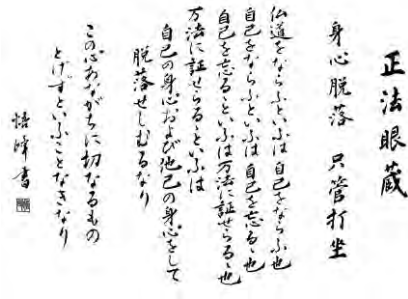 正法眼蔵
身心脱落 只管打坐
仏道をならふといふは自己をならふ也
自己をならふといふは自己を忘るゝ也
自己を忘るゝといふは万法に証せらるゝ也
万法に証せらるゝといふは
自己の身心および他己の身心をして
脱落せしむるなり
この心あながちに切なるもの
とげずといふことなきなり
悟峰書